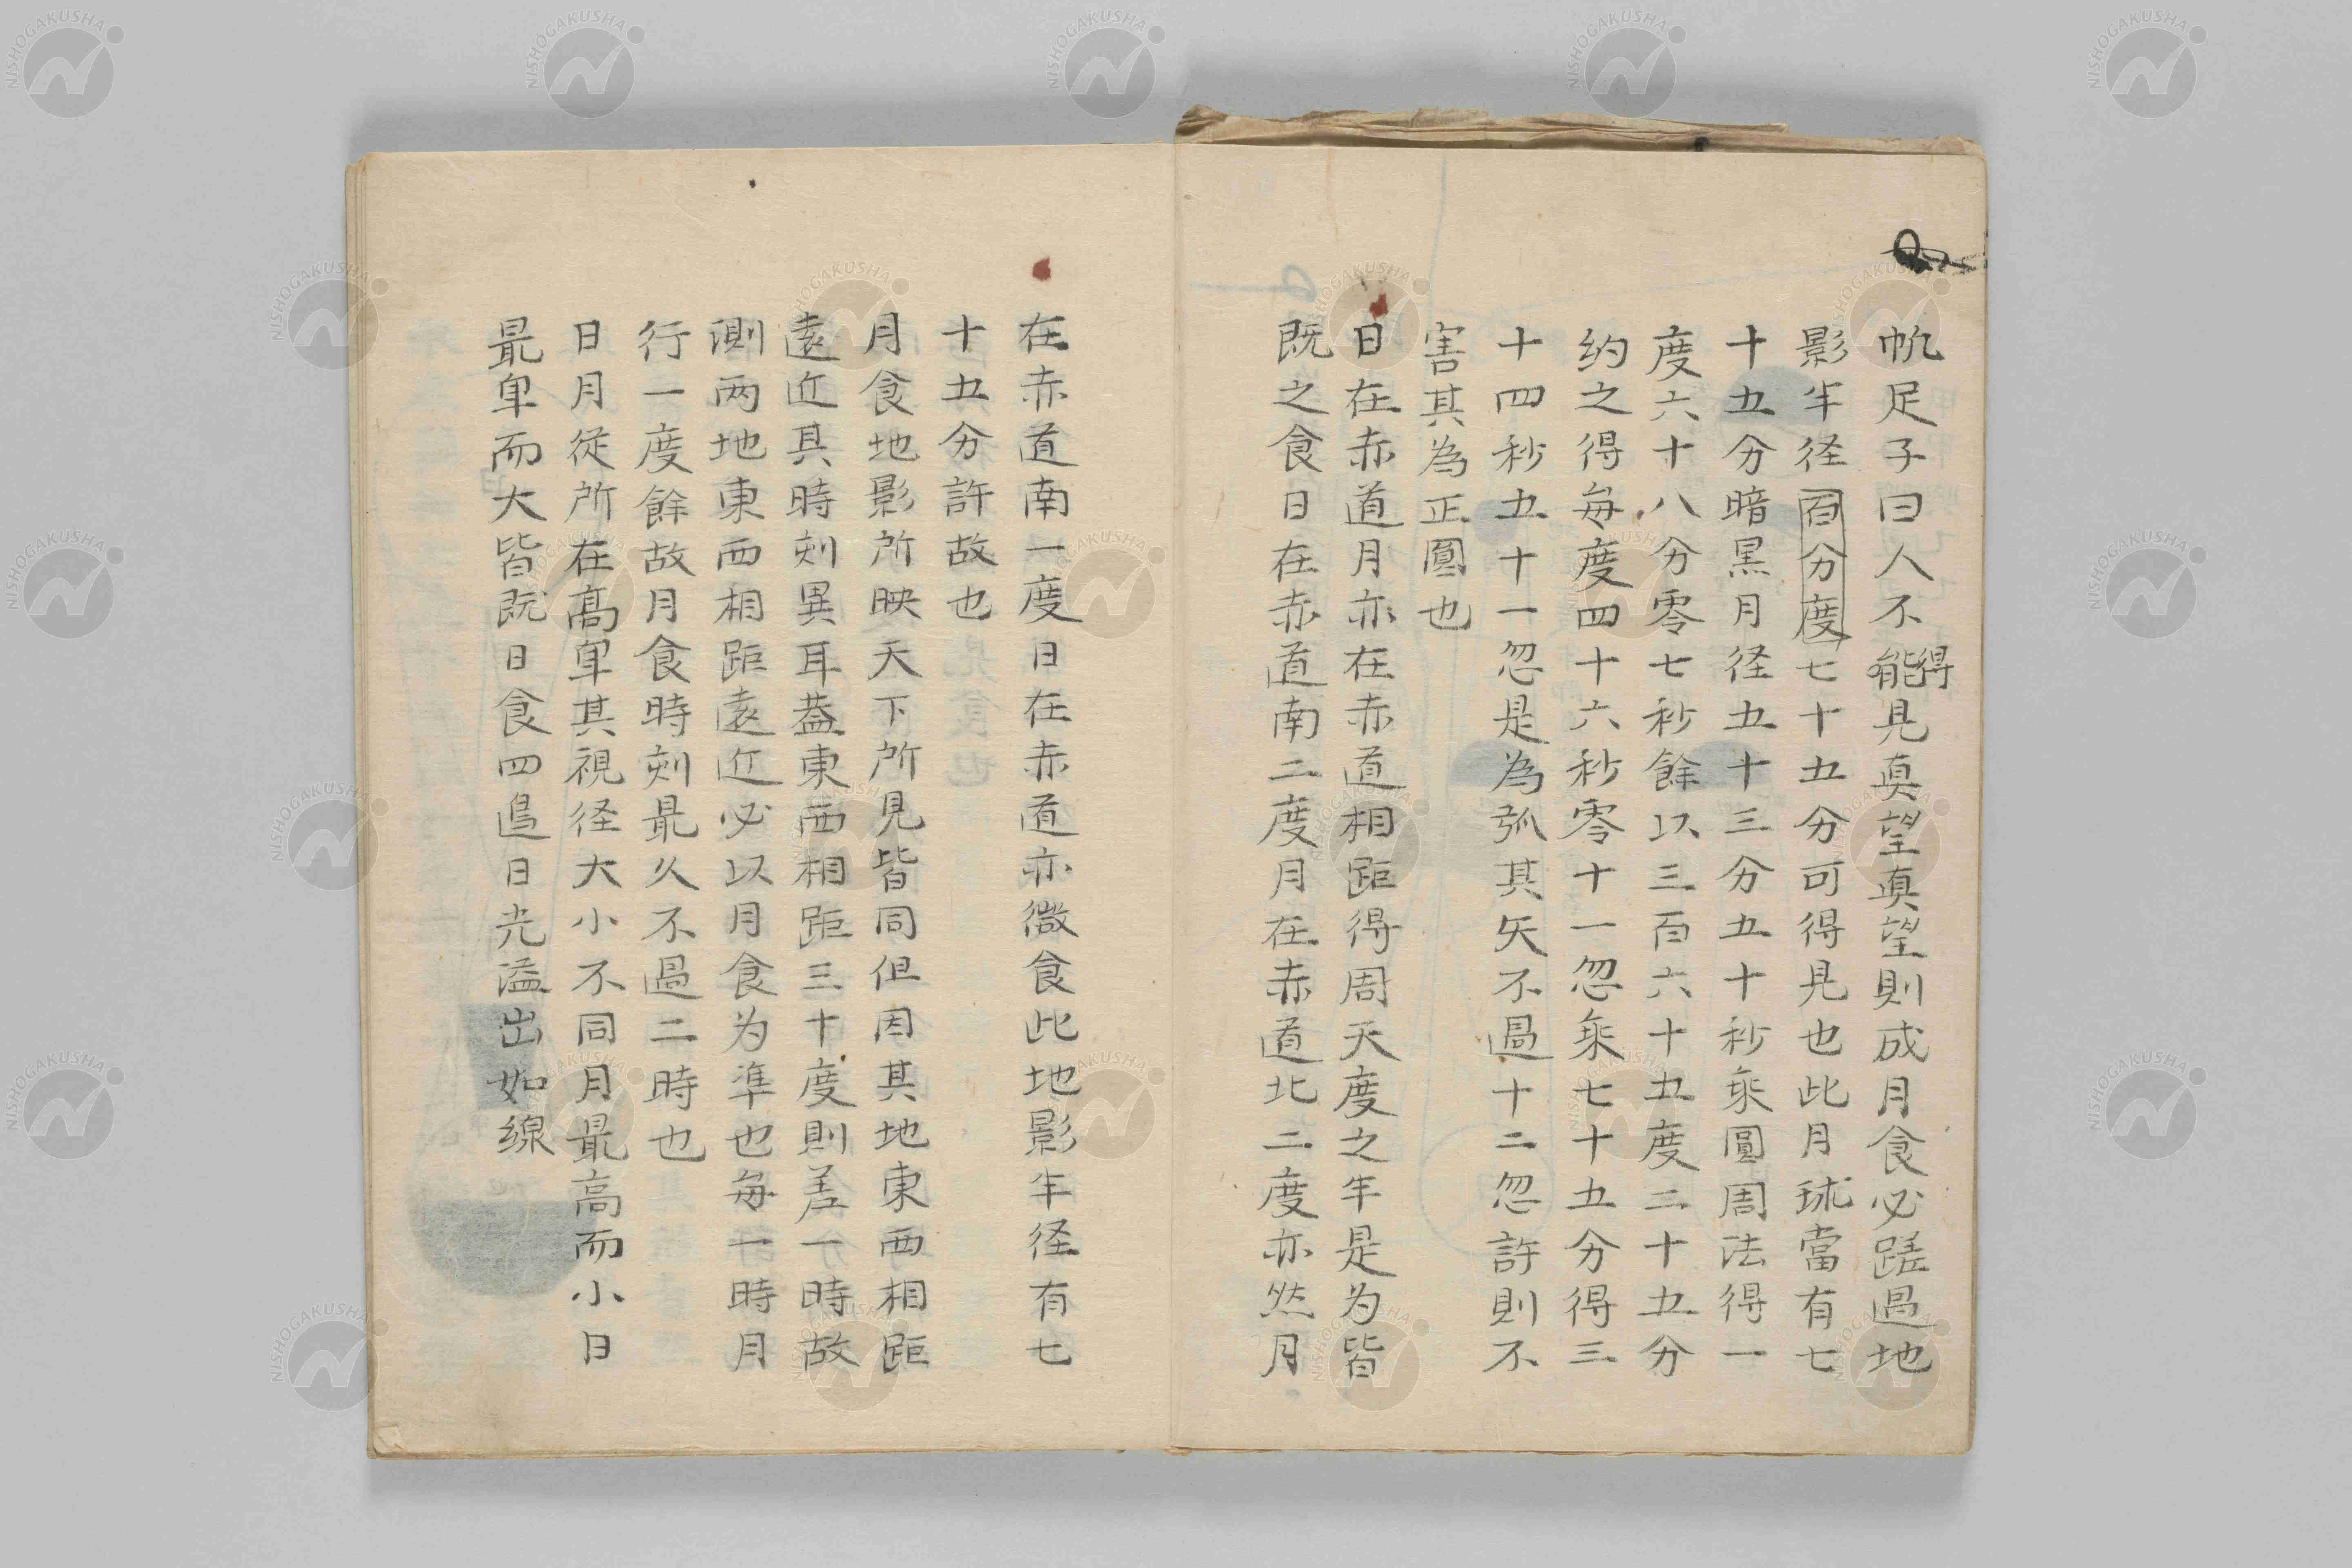 帆足子曰人不能得見真望真望則成月食必蹉過地
影半径百分度七十五分可得見也此月球當有七
十五分暗黒月径五十三分五十秒乗圓周法得一
度六十八分零七秒餘以三百六十五度二十五分
約之得毎度四十六秒零十一忽乗七十五分得三
十四秒五十一忽是為弧其矢不過十二忽許則不
害其為正圓也
日在赤道月亦在赤道相距得周天度之半是为皆
既之食日在赤道南二度月在赤道北二度亦然月
在赤道南一度日在赤道亦微食此地影半径有七
十五分許故也
月食地影所映天下所見皆同但因其地東西相距
遠近其時刻異耳蓋東西相距三十度則差一時故
測両地東西相距遠近必以月食为準也毎一時月
行一度餘故月食時刻最久不過二時也
日月従所在高卑其視径大小不同月最高而小日
最卑而大皆既日食四邉日光溢出如線
NISHOGAKUSHA